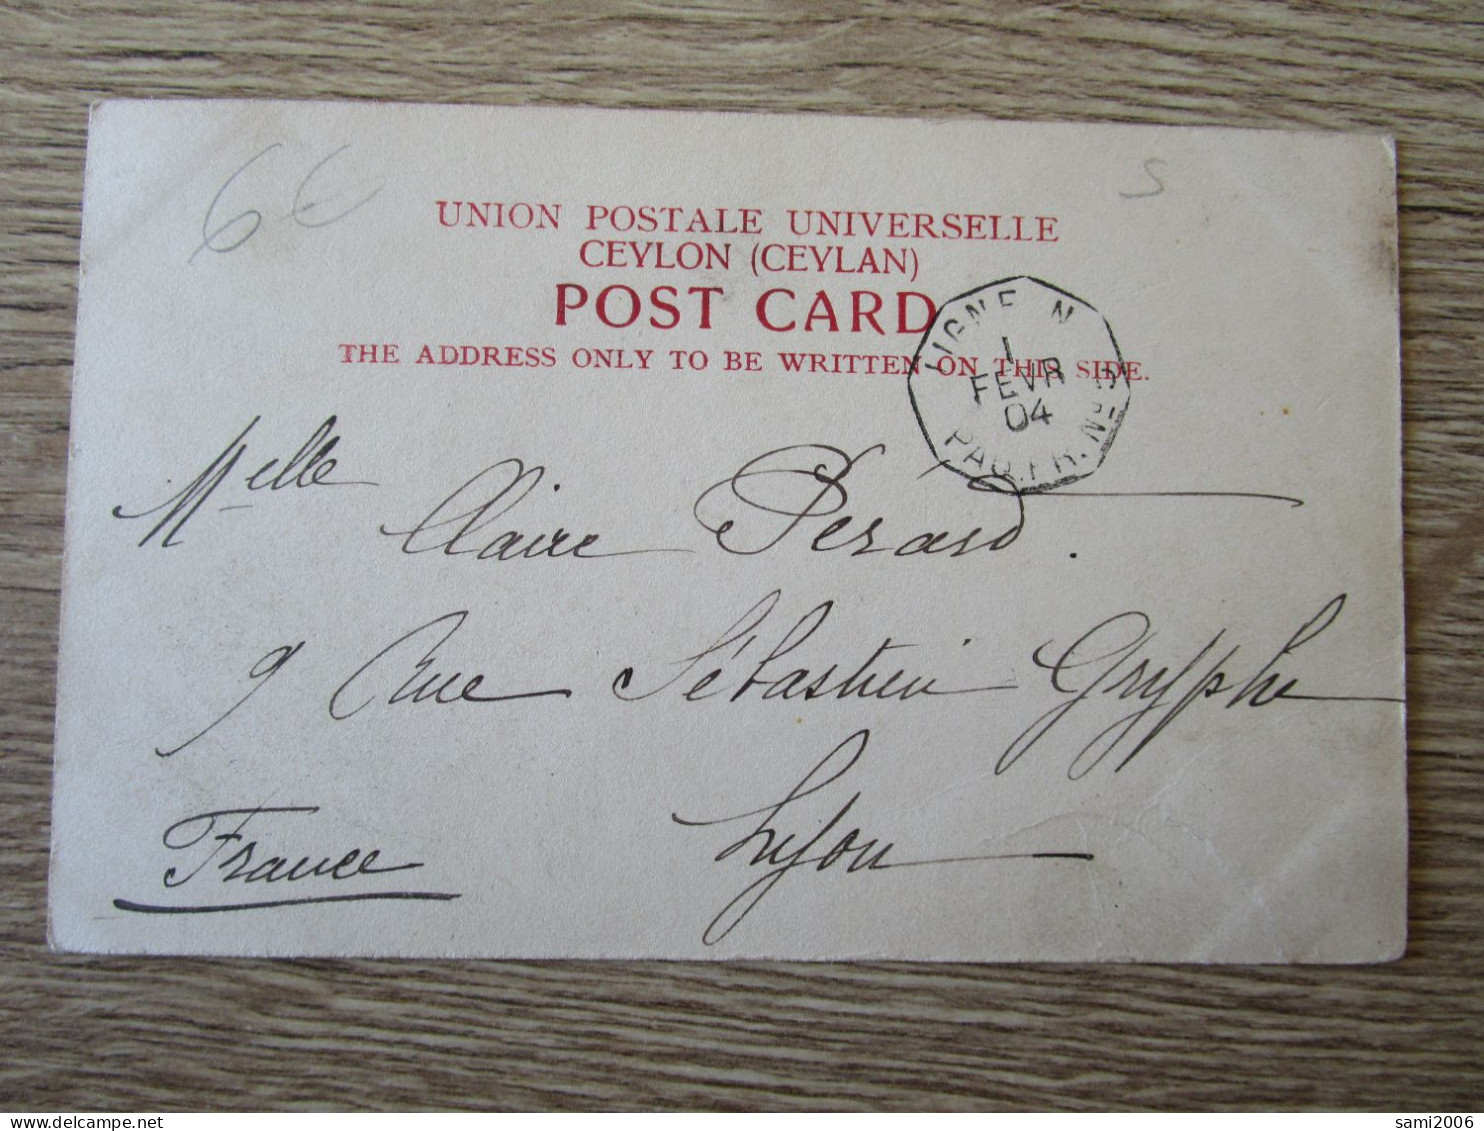 6€
S
UNION POSTALE UNIVERSELLE
CEYLON (CEYLAN)
POST CARD
THE ADDRESS ONLY TO BE WRITTEN ON THIS SIDE.
LIGNE N
PAQ. FR. N°
1
FEVR
04
Melle Claire Perard.
9 Rue Sébastien Gryphe
Lyon
France
sami2006